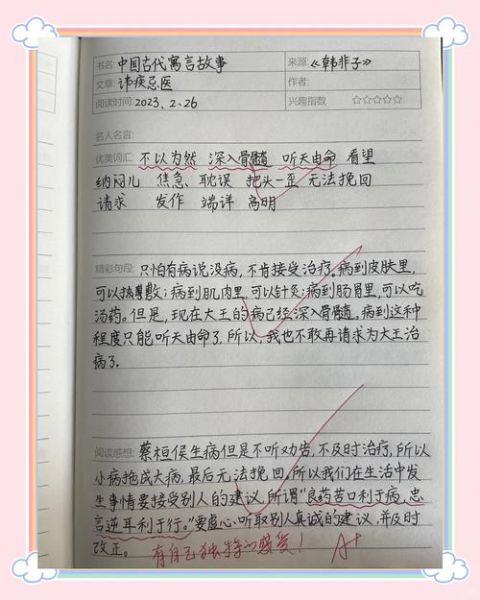 书名: 中国古代寓言故事 来源: 《韩非子》
文章: 讳疾忌医 作者:
阅读时间: 2023.2.26 兴趣指数 ☆☆☆☆☆
名人名言:
优美词汇: 不以为然 深入骨髓 听天由命 看望
纳闷儿 焦急、耽误 把头一歪 无法挽回
请求 发作 端详 高明
精彩句段: 只怕有病说没病,不肯接受治疗。病到皮肤里,
可以热敷;病到肌肉里,可以针灸;病到肠胃里,可以吃
汤药。但是,现在大王的病已经深入骨髓,病到这种
程度只能听天由命了,所以,我也不敢再请求为大王治
病了。
阅读感想: 蔡桓侯生病但是不听劝告,不及时治疗,所以
小病拖成大病,最后无法挽回,所以我们在生活中发
生事情要接受别人的建议,所谓“良药苦口利于病,忠
言逆耳利于行。”要虚心听取别人真诚的建议,并及时
改正。 有自己独特的感受! A+